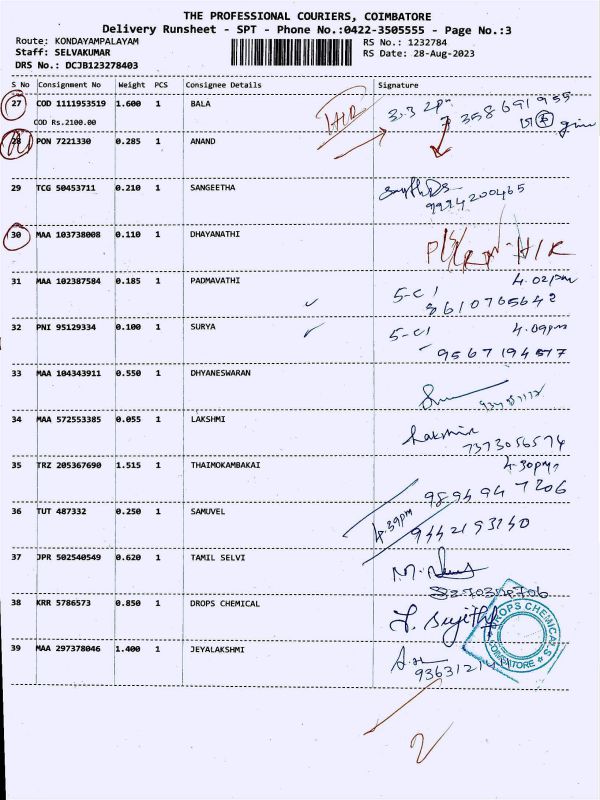 THE PROFESSIONAL COURIERS, COIMBATORE
Delivery Runsheet - SPT - Phone No.:0422-3505555 - Page No.:3
Route: KONDAYAMPALAYAM RS No.: 1232784
Staff: SELVAKUMAR RS Date: 28-Aug-2023
DRS No.: DCJB123278403
S No Consignment No Weight PCS Consignee Details Signature
27 COD 1111953519 1.600 1 BALA 3.32pm
COD Rs.2100.00 7358691955
28 PON 7221330 0.285 1 ANAND
29 TCG 50453711 0.210 1 SANGEETHA
9994200465
30 MAA 103738008 0.110 1 DHAYANATHI
31 MAA 102387584 0.185 1 PADMAVATHI 5-C1 4.02pm
8610765642
32 PNI 95129334 0.100 1 SURYA 5-C1 4.09pm
9567194577
33 MAA 104343911 0.550 1 DHYANESWARAN
34 MAA 572553385 0.055 1 LAKSHMI Lakshmi
7373056574
35 TRZ 205367690 1.515 1 THAIMOKAMBAKAI 4.30pm
9894947206
36 TUT 487332 0.250 1 SAMUVEL 4.39pm
9442193140
37 JPR 502540549 0.620 1 TAMIL SELVI
38 KRR 5786573 0.850 1 DROPS CHEMICAL J. Sujitha
DROPS CHEMICALS
COIMBATORE
39 MAA 297378046 1.400 1 JEYALAKSHMI
2